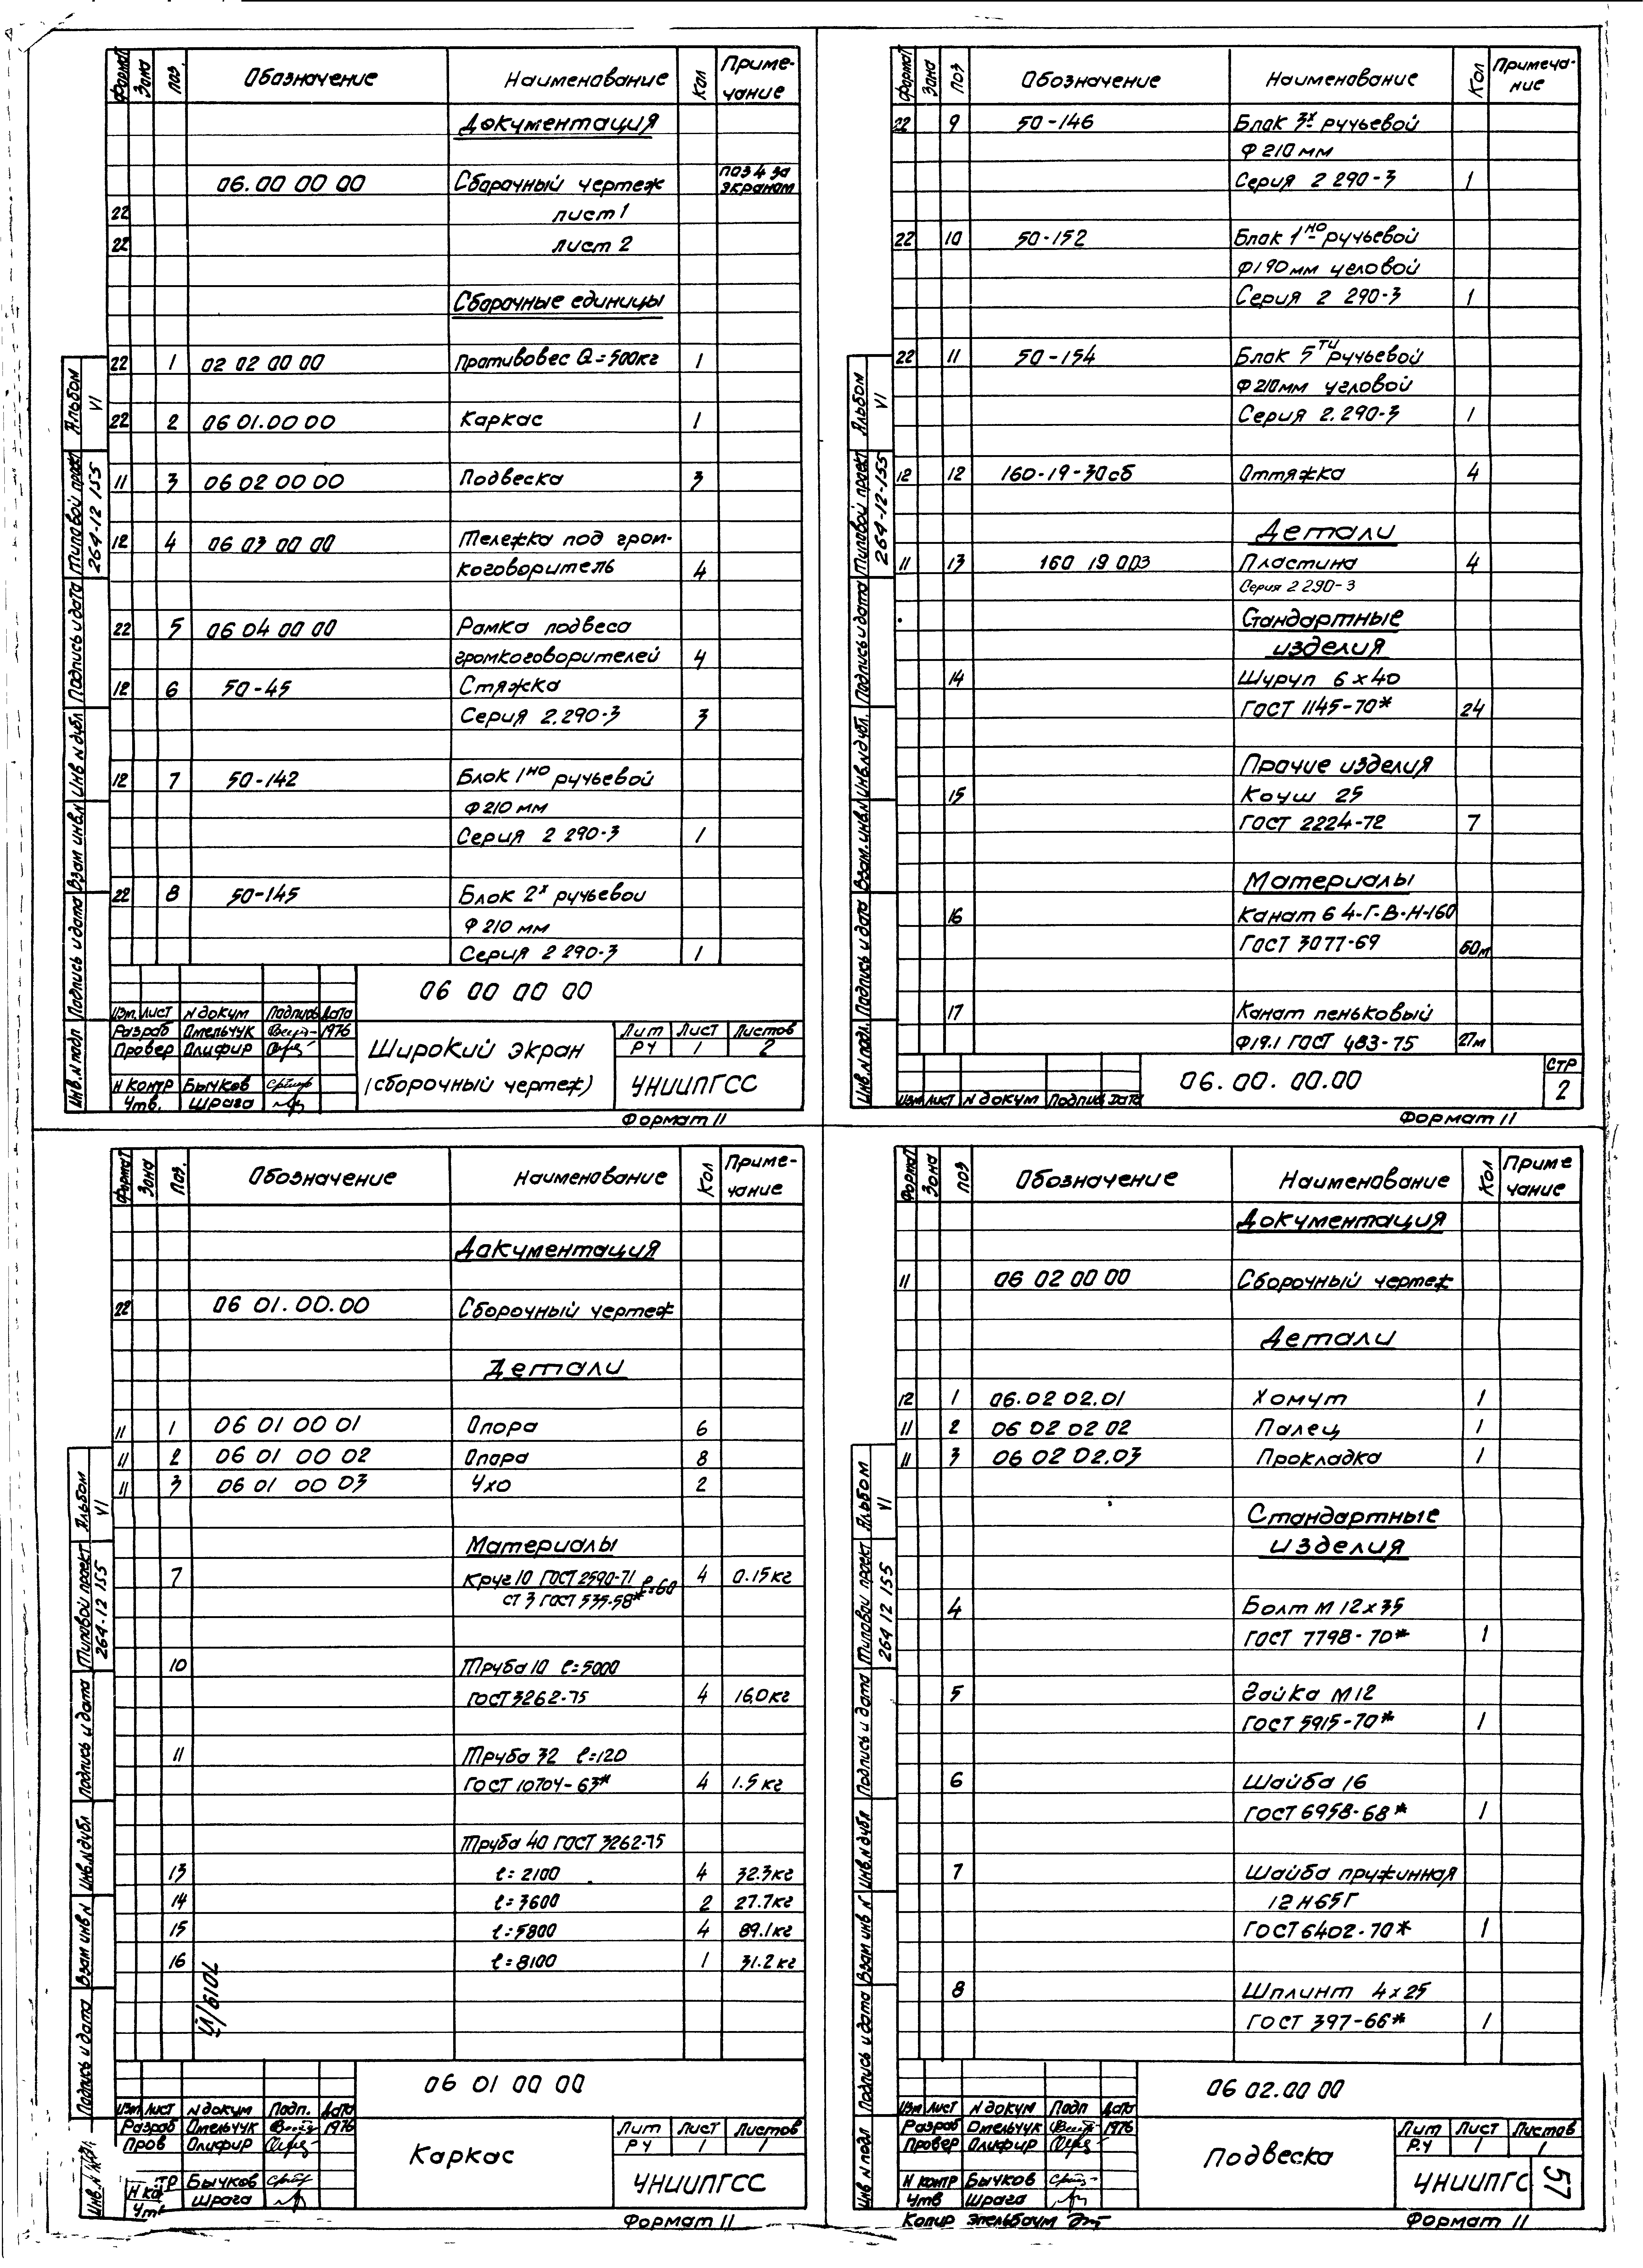 Формат Зона Поз. Обозначение Наименование Кол Приме-
чание
Документация
06.00 00 00 Сборочный чертеж поз 4 за
экраном
22 лист 1
22 лист 2
Сборочные единицы
22 1 02 02 00 00 Противовес Q=500кг 1
22 2 06 01.00 00 Каркас 1
11 3 06 02 00 00 Подвеска 3
12 4 06 03 00 00 Тележка под гром-
коговоритель 4
22 5 06 04 00 00 Рамка подвеса
громкоговорителей 4
12 6 50-45 Стяжка
Серия 2.290-3 3
12 7 50-142 Блок 1но ручьевой
Ф210 мм
Серия 2 290-3 1
22 8 50-145 Блок 2х ручьевой
Ф210 мм
Серия 2 290-3 1
Альбом VI
Типовой проект 264-12 155
Подпись и дата
Инв N дубл
Взам инв.N
Подпись и дата
Инв.N подл
06 00 00 00
Изм. Лист N докум Подпись Дата
Разраб Омельчук 1976
Провер Олифир
Н контр Бычков
Утв. Шрага
Широкий экран
(сборочный чертеж)
Лит Лист Листов
РЧ 1 2
УНИИПГСС
Формат 11
Формат Зона Поз Обозначение Наименование Кол Примеча-
ние
22 9 50-146 Блок 3х ручьевой
Ф 210 мм
Серия 2 290-3 1
22 10 50-152 Блок 1но ручьевой
Ф190мм угловой
Серия 2 290-3 1
22 11 50-154 Блок 5ти ручьевой
Ф210мм угловой
Серия 2.290-3 1
12 12 160-19-30сб Оттяжка 4
Детали
11 13 160 19 003 Пластина 4
Серия 2 290-3
Стандартные
изделия
14 Шуруп 6х40
ГОСТ 1145-70* 24
Прочие изделия
15 Коуш 25
ГОСТ 2224-72 7
Материалы
16 Канат 6 4-Г-В-Н-160
ГОСТ 3077-69 60м
17 Канат пеньковый
Ф19.1 ГОСТ 483-75 27м
Альбом VI
Типовой проект 264-12-155
Подпись и дата
Инв.N дубл.
Взам.инв.N
Подпись и дата
Инв.N подл.
Изм Лист N докум Подпись Дата
06.00.00.00
стр
2
Формат 11
Формат Зона Поз. Обозначение Наименование Кол Приме-
чание
Документация
22 06 01.00.00 Сборочный чертеж
Детали
11 1 06 01 00 01 Опора 6
11 2 06 01 00 02 Опора 8
11 3 06 01 00 03 Ухо 2
Материалы
7 Круг 10 ГОСТ 2590-71 ℓ=60 4 0.15кг
ст 3 ГОСТ 535-58*
10 Труба 10 ℓ=5000
ГОСТ 3262-75 4 16.0кг
11 Труба 32 ℓ=120
ГОСТ 10704-63* 4 1.5 кг
Труба 40 ГОСТ 3262-75
13 ℓ=2100 4 32.3кг
14 ℓ=3600 2 27.7кг
15 ℓ=5800 4 89.1кг
16 ℓ=8100 1 31.2 кг
Альбом VI
Типовой проект 264-12 155
Подпись и дата
Инв.N дубл
Взам инв N
Подпись и дата
06 01 00 00
Изм Лист N докум Подп. Дата
Разраб Омельчук 1976
Пров Олифир
Бычков
Шрага
Каркас
Лит Лист Листов
РЧ 1 1
УНИИПГСС
Формат 11
Формат Зона Поз Обозначение Наименование Кол Приме
чание
Документация
11 06 02 00 00 Сборочный чертеж
Детали
12 1 06.02 02.01 Хомут 1
11 2 06 02 02 02 Палец 1
11 3 06 02 02.03 Прокладка 1
Стандартные
изделия
4 Болт М 12х35
ГОСТ 7798-70* 1
5 Гайка М12
ГОСТ 5915-70* 1
6 Шайба 16
ГОСТ 6958-68* 1
7 Шайба пружинная
12 Н65Г
ГОСТ 6402-70* 1
8 Шплинт 4х25
ГОСТ 397-66* 1
Альбом VI
Типовой проект 264 12 155
Подпись и дата
Инв.N дубл
Взам инв N
Подпись и дата
Инв N подл
06 02.00 00
Изм Лист N докум Подп Дата
Разраб Омельчук 1976
Провер Олифир
Н контр Бычков
Утв Шрага
Подвеска
Лит Лист Листов
Р.Ч 1 1
УНИИПГС
57
Копир Эпельбаум
Формат 11